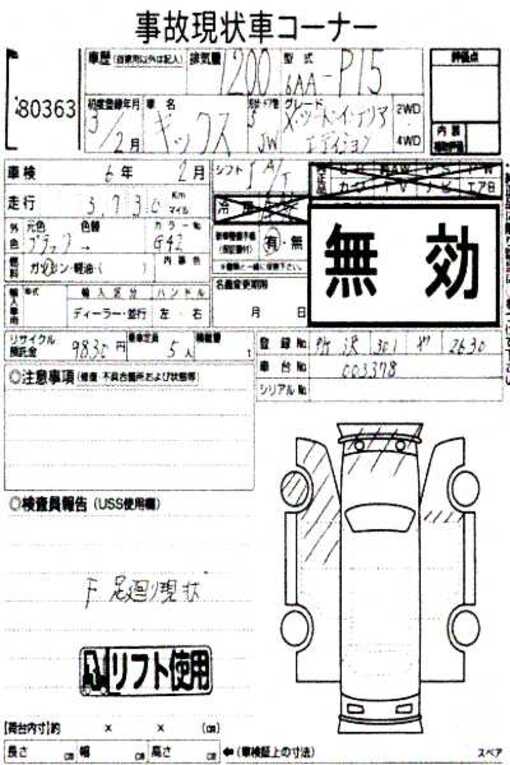 事故現状車コーナー
車歴(自家用以外は記入) 排気量 1200 型式 6AA-P15 評価点
80363
初度登録年月 車名 グレード
3/2月 キックス 5 5W X・ツートーンインテリア エディション 2WD 4WD
内装
車検 6年 2月 シフト
走行 3,730 Km マイル
外色 元色 色替 カラーNo
ブラック → G42
有・無
燃料 ガソリン・軽油・( ) 内装色
名義変更期限
月 日
無効
輸入車用 年式 輸入区分 ハンドル
ディーラー・並行 左・右
リサイクル預託金 9830円 乗車定員 5人 積載量 t
登録No 所沢 301 2630
車台No 003378
シリアルNo
◎注意事項(修復・不具合箇所および状態等)
◎検査員報告(USS使用欄)
F 足廻り現状
リフト使用
【荷台内寸】約 × × (㎝)
長さ ㎝ 幅 ㎝ 高さ ㎝ ←(車検証上の寸法)
スペア